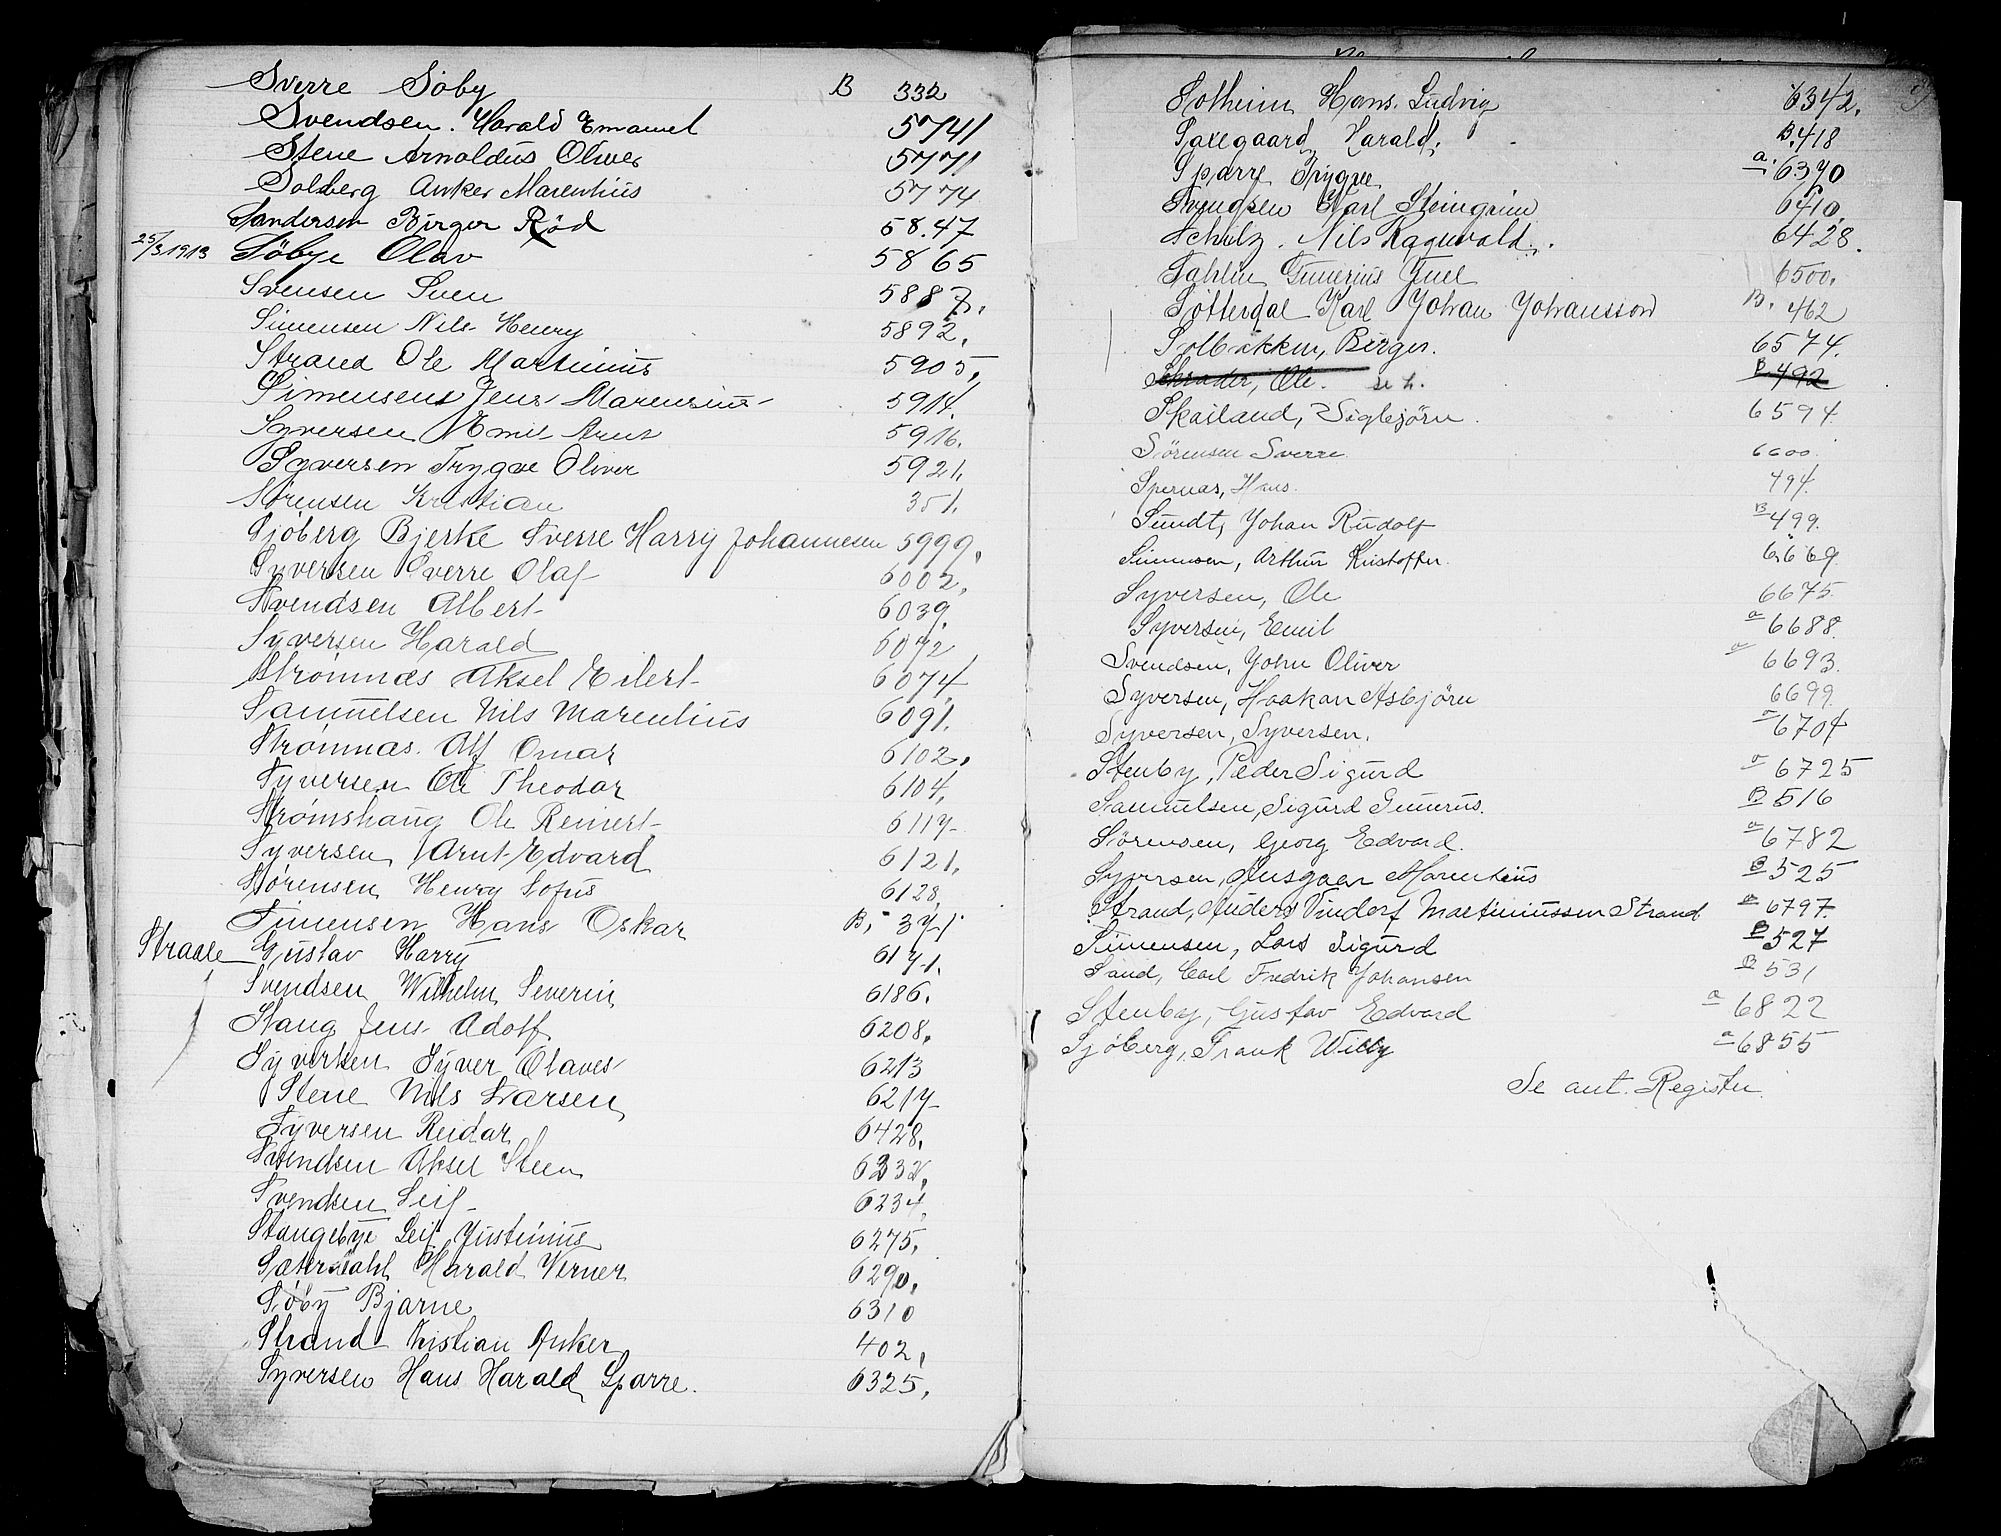 Sverre Söby B 332
Svendsen. Harald Emanuel 5741
Stene Arnoldus Oliver 5771
Solberg Anker Marentius 5774
Sandersen Birger Röd 58.47
25/3 1913 Söbye Olav 5865
Svensen Sven 5887.
Simensen Nils Henry 5892.
Strand Ole Martinius 5905.
Simensen Jens Marensius 5914.
Syversen Emil Arnt 5916.
Syversen Trygve Oliver 5921.
Sörensen Kristian 351.
Sjöberg Bjerke Sverre Harry Johannesen 5999.
Syversen Sverre Olaf 6002.
Svendsen Albert 6039.
Syversen Harald 6072
Strömnæs Aksel Eilert 6074.
Samuelsen Nils Marentius 6091.
Strömnæs. Alf Omar 6102.
Syversen Ole Theodor 6104.
Strömshaug Ole Reinert 6117
Syversen Arnt Edvard 6121.
Sörensen Henry Sofus 6128.
Simensen Hans Oskar B, 371
Straale Gustav Harry 6171.
Svendsen Wilhelm Severin 6186.
Stang Jens Adolf 6208.
Syversen Syver Olaves 6213
Stene Nils Larsen 6217
Syversen Reidar 6428.
Svendsen Aksel Steen 6232.
Svendsen Leif 6234.
Stangebye Leif Justinius 6275.
Sæterdahl Harald Verner 6290.
Söby Bjarne 6310
Strand Kristian Anker 402.
Syversen Hans Harald Sparre. 6325.
Solheim Hans Ludvig 6342.
Saxegaard Harald. B.418
Sparre Trygve a. 6370
Svendsen Karl Steingrim 6410.
Schulz. Nils Ragnvald. 6428.
Sahlin Gunerius Juel 6500.
Sötterdal Karl Johan Johansson B. 462
Solbakken, Birger. 6574.
Schrader, Ole. se h. B 492
Skailand, Sigbjörn. 6594.
Sörensen Sverre 6600
Spernæs, Hans. 494.
Sundt, Johan Rudolf B 499.
Simensen, Arthur Kristoffer. 6669.
Syversen, Ole 6675.
Syversen, Emil a 6688.
Svendsen, John Oliver a 6693.
Syversen, Haakon Asbjörn 6699.
Syversen, Syversen. a 6704
Stenby, Peder Sigurd a 6725
Samuelsen, Sigurd Gunerus. B 516
Sörensen, Georg Edvard. a 6782
Syversen, Ansgar Marentius B 525
Strand, Anders Vindorf Martiniussen Strand a 6797.
Simensen, Lars Sigurd B 527
Sand, Carl Fredrik Johansen B 531
Stenby, Gustav Edvard a 6822
Sjöberg, Frank Willy a 6855
Se ant. Register.